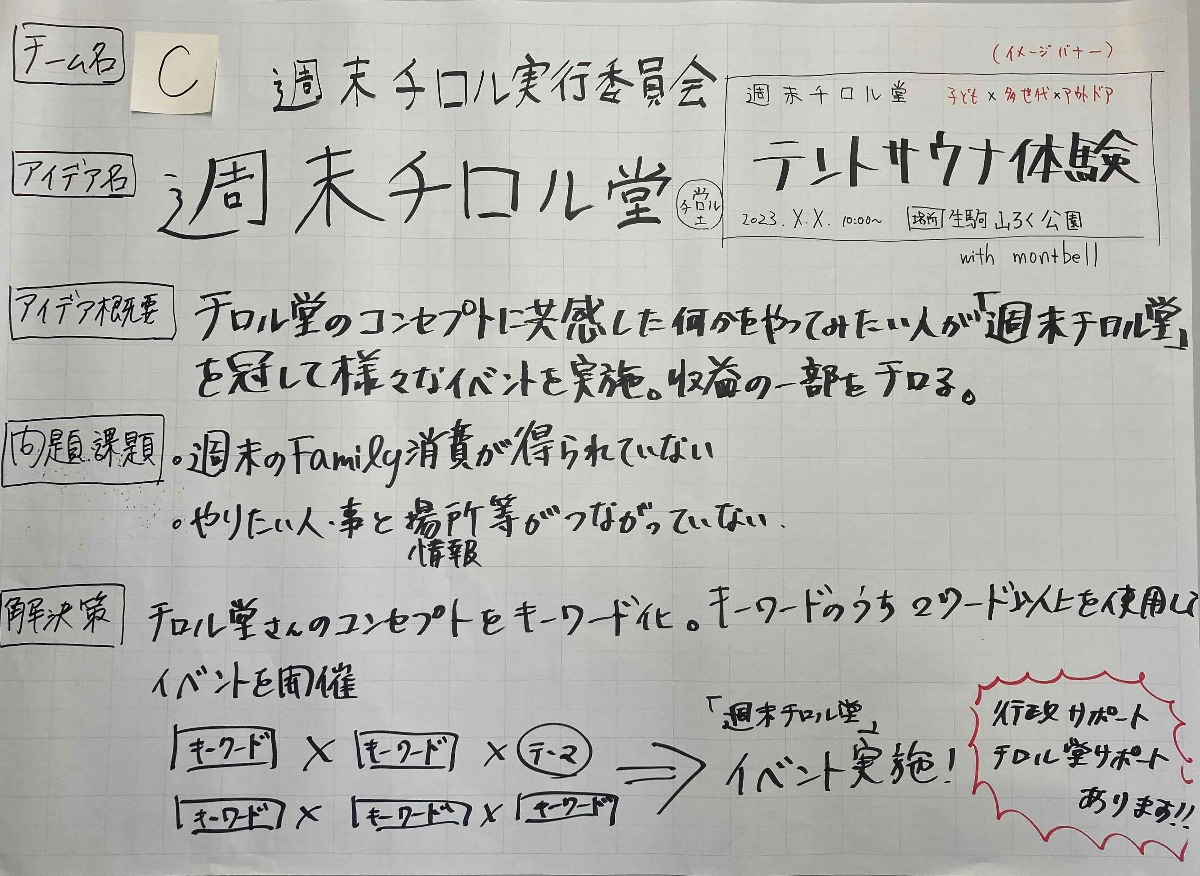 チーム名
C
週末チロル実行委員会
(イメージバナー)
週末チロル堂 子ども×多世代×アウトドア
テントサウナ体験
2023.X.X. 10:00~ 場所 生駒山ろく公園
with montbell
アイデア名
週末チロル堂
アイデア概要
チロル堂のコンセプトに共感した何かをやってみたい人が「週末チロル堂」
を冠して様々なイベントを実施。収益の一部をチロる。
問題課題
。週末のFamily消費が得られていない
。やりたい人・事と場所等がつながっていない.
情報
解決策
チロル堂さんのコンセプトをキーワード化。キーワードのうち2ワード以上を使用して
イベントを開催
キーワード × キーワード × テーマ
キーワード × キーワード × キーワード
⇒
「週末チロル堂」
イベント実施!
行政サポート
チロル堂サポート
あります!!